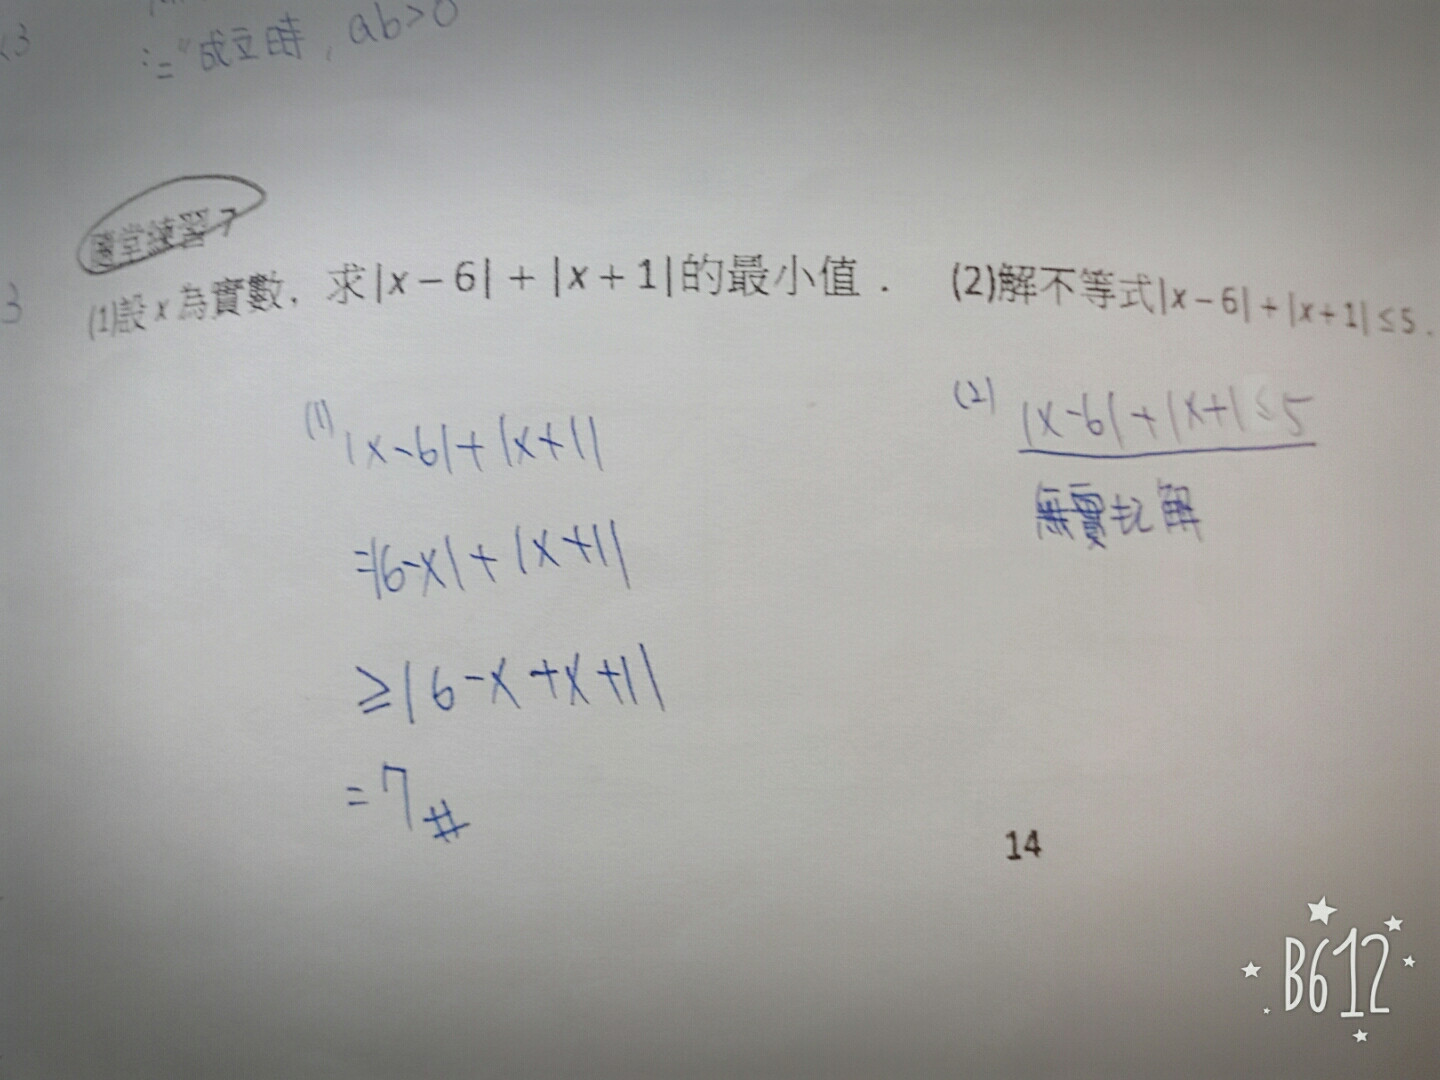 "="成立時，ab>0
<3
隨堂練習7
3
(1)設 x 為實數，求|x−6|+|x+1|的最小值．
(2)解不等式|x−6|+|x+1|≤5．
(1) |x-6|+|x+1|
=|6-x|+|x+1|
≥|6-x+x+1|
=7#
(2) |x-6|+|x+1≤5
無實數解
14
B612